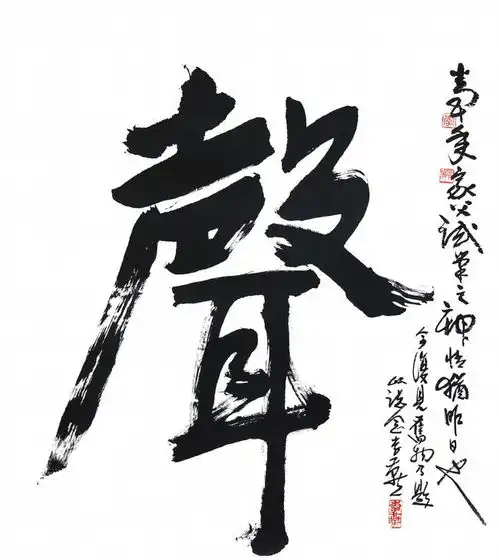 聲
家父試筆之神情猶昨日也
今復見舊物乃題
以誌念